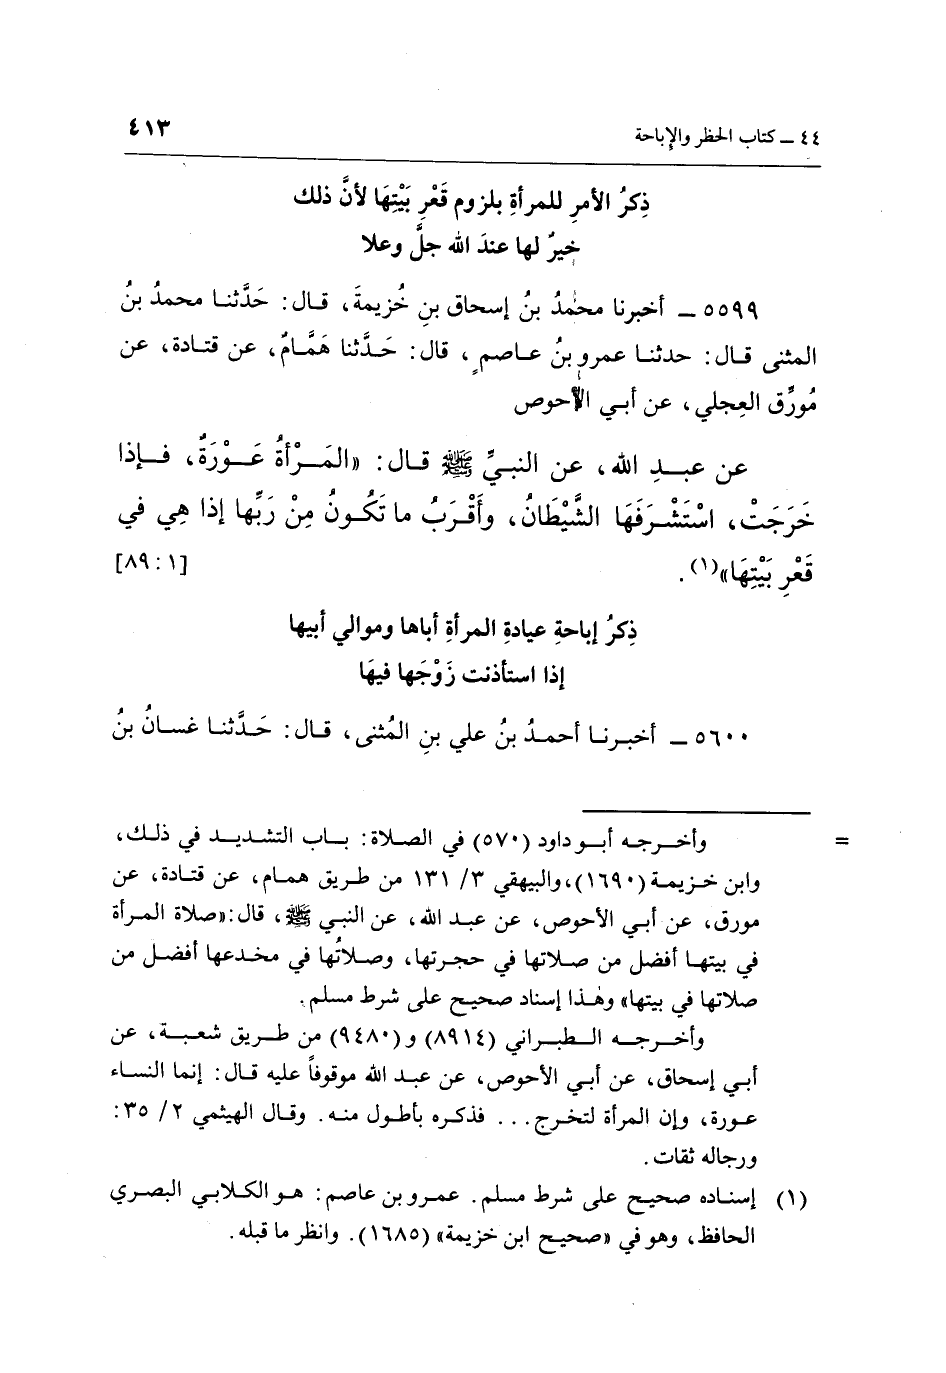 ٤٤ ــ كتاب الحظر والإباحة ٤١٣
ذِكرُ الأمرِ للمرأةِ بلزوم قَعْرِ بَيْتِهَا لأنَّ ذلك
خيرٌ لها عندَ الله جلَّ وعلا
٥٥٩٩ ــ أخبرنا محمدُ بنُ إسحاق بنِ خُزيمةَ، قال: حَدَّثنا محمدُ بنُ
المثنى قال: حدثنا عمرو بنُ عاصمٍ، قال: حَدَّثنا هَمَّامٌ، عن قتادة، عن
مُورِّق العِجلي، عن أبي الأحوص
عن عبدِ الله، عن النبيِّ ﷺ قال: «المَرْأةُ عَوْرَةٌ، فإذا
خَرَجَتْ، اسْتَشْرَفَهَا الشَّيْطَانُ، وأَقْرَبُ ما تَكُونُ مِنْ رَبِّها إذا هِي في
قَعْرِ بَيْتِهَا»(١). [٨٩:١]
ذِكرُ إباحةِ عيادةِ المرأةِ أباها وموالي أبيها
إذا استأذنت زَوْجَها فيهَا
٥٦٠٠ ــ أخبرنا أحمدُ بنُ علي بنِ المُثنى، قال: حَدَّثنا غسانُ بنُ
= وأخرجه أبو داود (٥٧٠) في الصلاة: باب التشديد في ذلك،
وابن خزيمة (١٦٩٠)، والبيهقي ٣/ ١٣١ من طريق همام، عن قتادة، عن
مورق، عن أبي الأحوص، عن عبد الله، عن النبي ﷺ، قال: «صلاة المرأة
في بيتها أفضل من صلاتها في حجرتها، وصلاتُها في مخدعها أفضل من
صلاتها في بيتها» وهٰذا إسناد صحيح على شرط مسلم.
وأخرجه الطبراني (٨٩١٤) و(٩٤٨٠) من طريق شعبة، عن
أبي إسحاق، عن أبي الأحوص، عن عبد الله موقوفاً عليه قال: إنما النساء
عورة، وإن المرأة لتخرج... فذكره بأطول منه. وقال الهيثمي ٢/ ٣٥:
ورجاله ثقات.
(١) إسناده صحيح على شرط مسلم. عمرو بن عاصم: هو الكلابي البصري
الحافظ، وهو في «صحيح ابن خزيمة» (١٦٨٥). وانظر ما قبله.